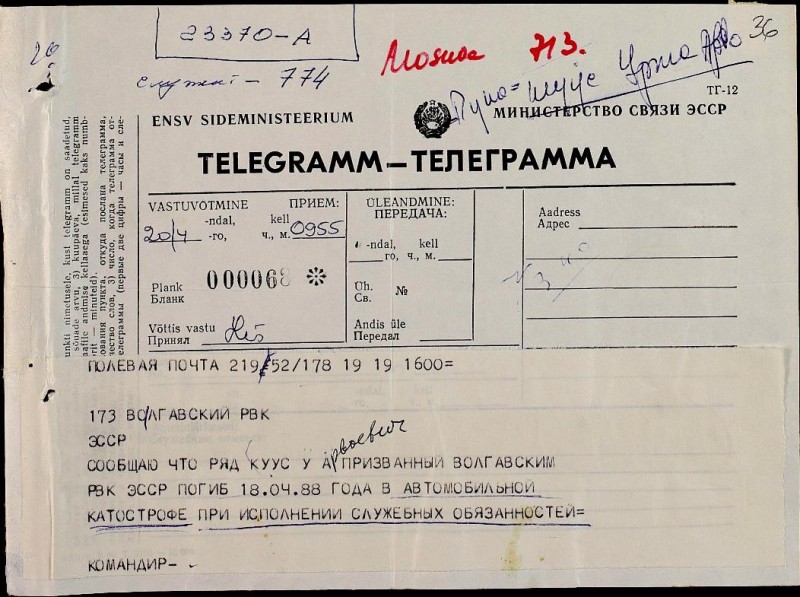 36
23370-А
Москва 713.
служ - 774
ТГ-12
ENSV SIDEMINISTEERIUM
МИНИСТЕРСТВО СВЯЗИ ЭССР
TELEGRAMM—ТЕЛЕГРАММА
VASTUVÕTMINE ПРИЕМ:
20/4 -ndal, kell
-го, ч., м. 0955
Plank
Бланк 000068 *
Võttis vastu
Принял
ÜLEANDMINE:
ПЕРЕДАЧА:
-ndal, kell
го, ч., м.
Üh.
Св. №
Andis üle
Передал
Aadress
Адрес
unkti nimetusele, kust telegramm on saadetud,
sõnade arvu, 3) kuupäeva, millal telegramm
kellaaega (esimesed kaks numb-
rit — minuteid).
пункта, откуда послана телеграмма,
чество слов, 3) число, когда телеграмма от-
елеграммы (первые две цифры — часы и сле-
ПОЛЕВАЯ ПОЧТА 219 52/178 19 19 1600=
173 ВОЛГАВСКИЙ РВК
ЭССР
СООБЩАЮ ЧТО РЯД КУУС У АРвоевич ПРИЗВАННЫЙ ВОЛГАВСКИМ
РВК ЭССР ПОГИБ 18.04.88 ГОДА В АВТОМОБИЛЬНОЙ
КАТОСТРОФЕ ПРИ ИСПОЛНЕНИИ СЛУЖЕБНЫХ ОБЯЗАННОСТЕЙ=
КОМАНДИР-